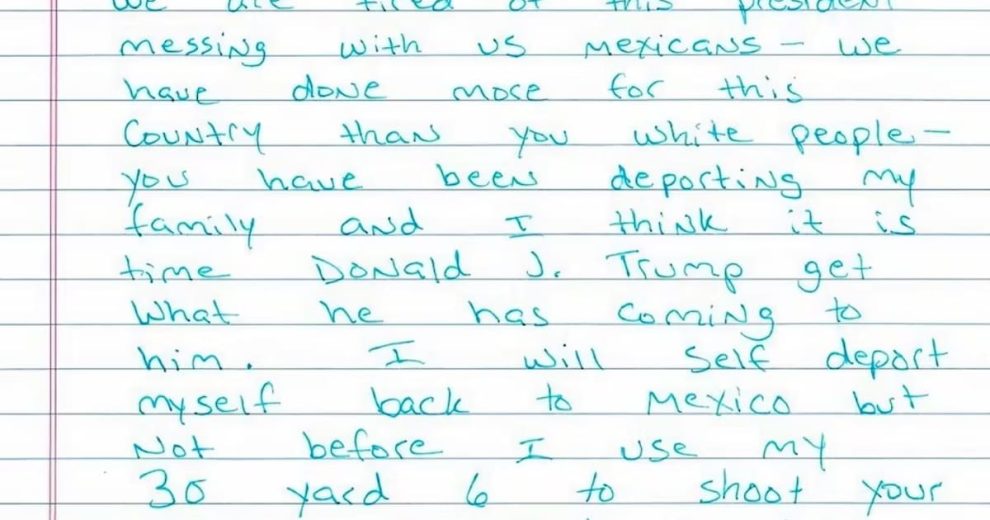 We are tired of this president
messing with us mexicans - we
have done more for this
Country than you white people-
you have been deporting my
family and I think it is
time Donald J. Trump get
What he has coming to
him. I will self deport
myself back to Mexico but
Not before I use my
30 yard 6 to shoot your